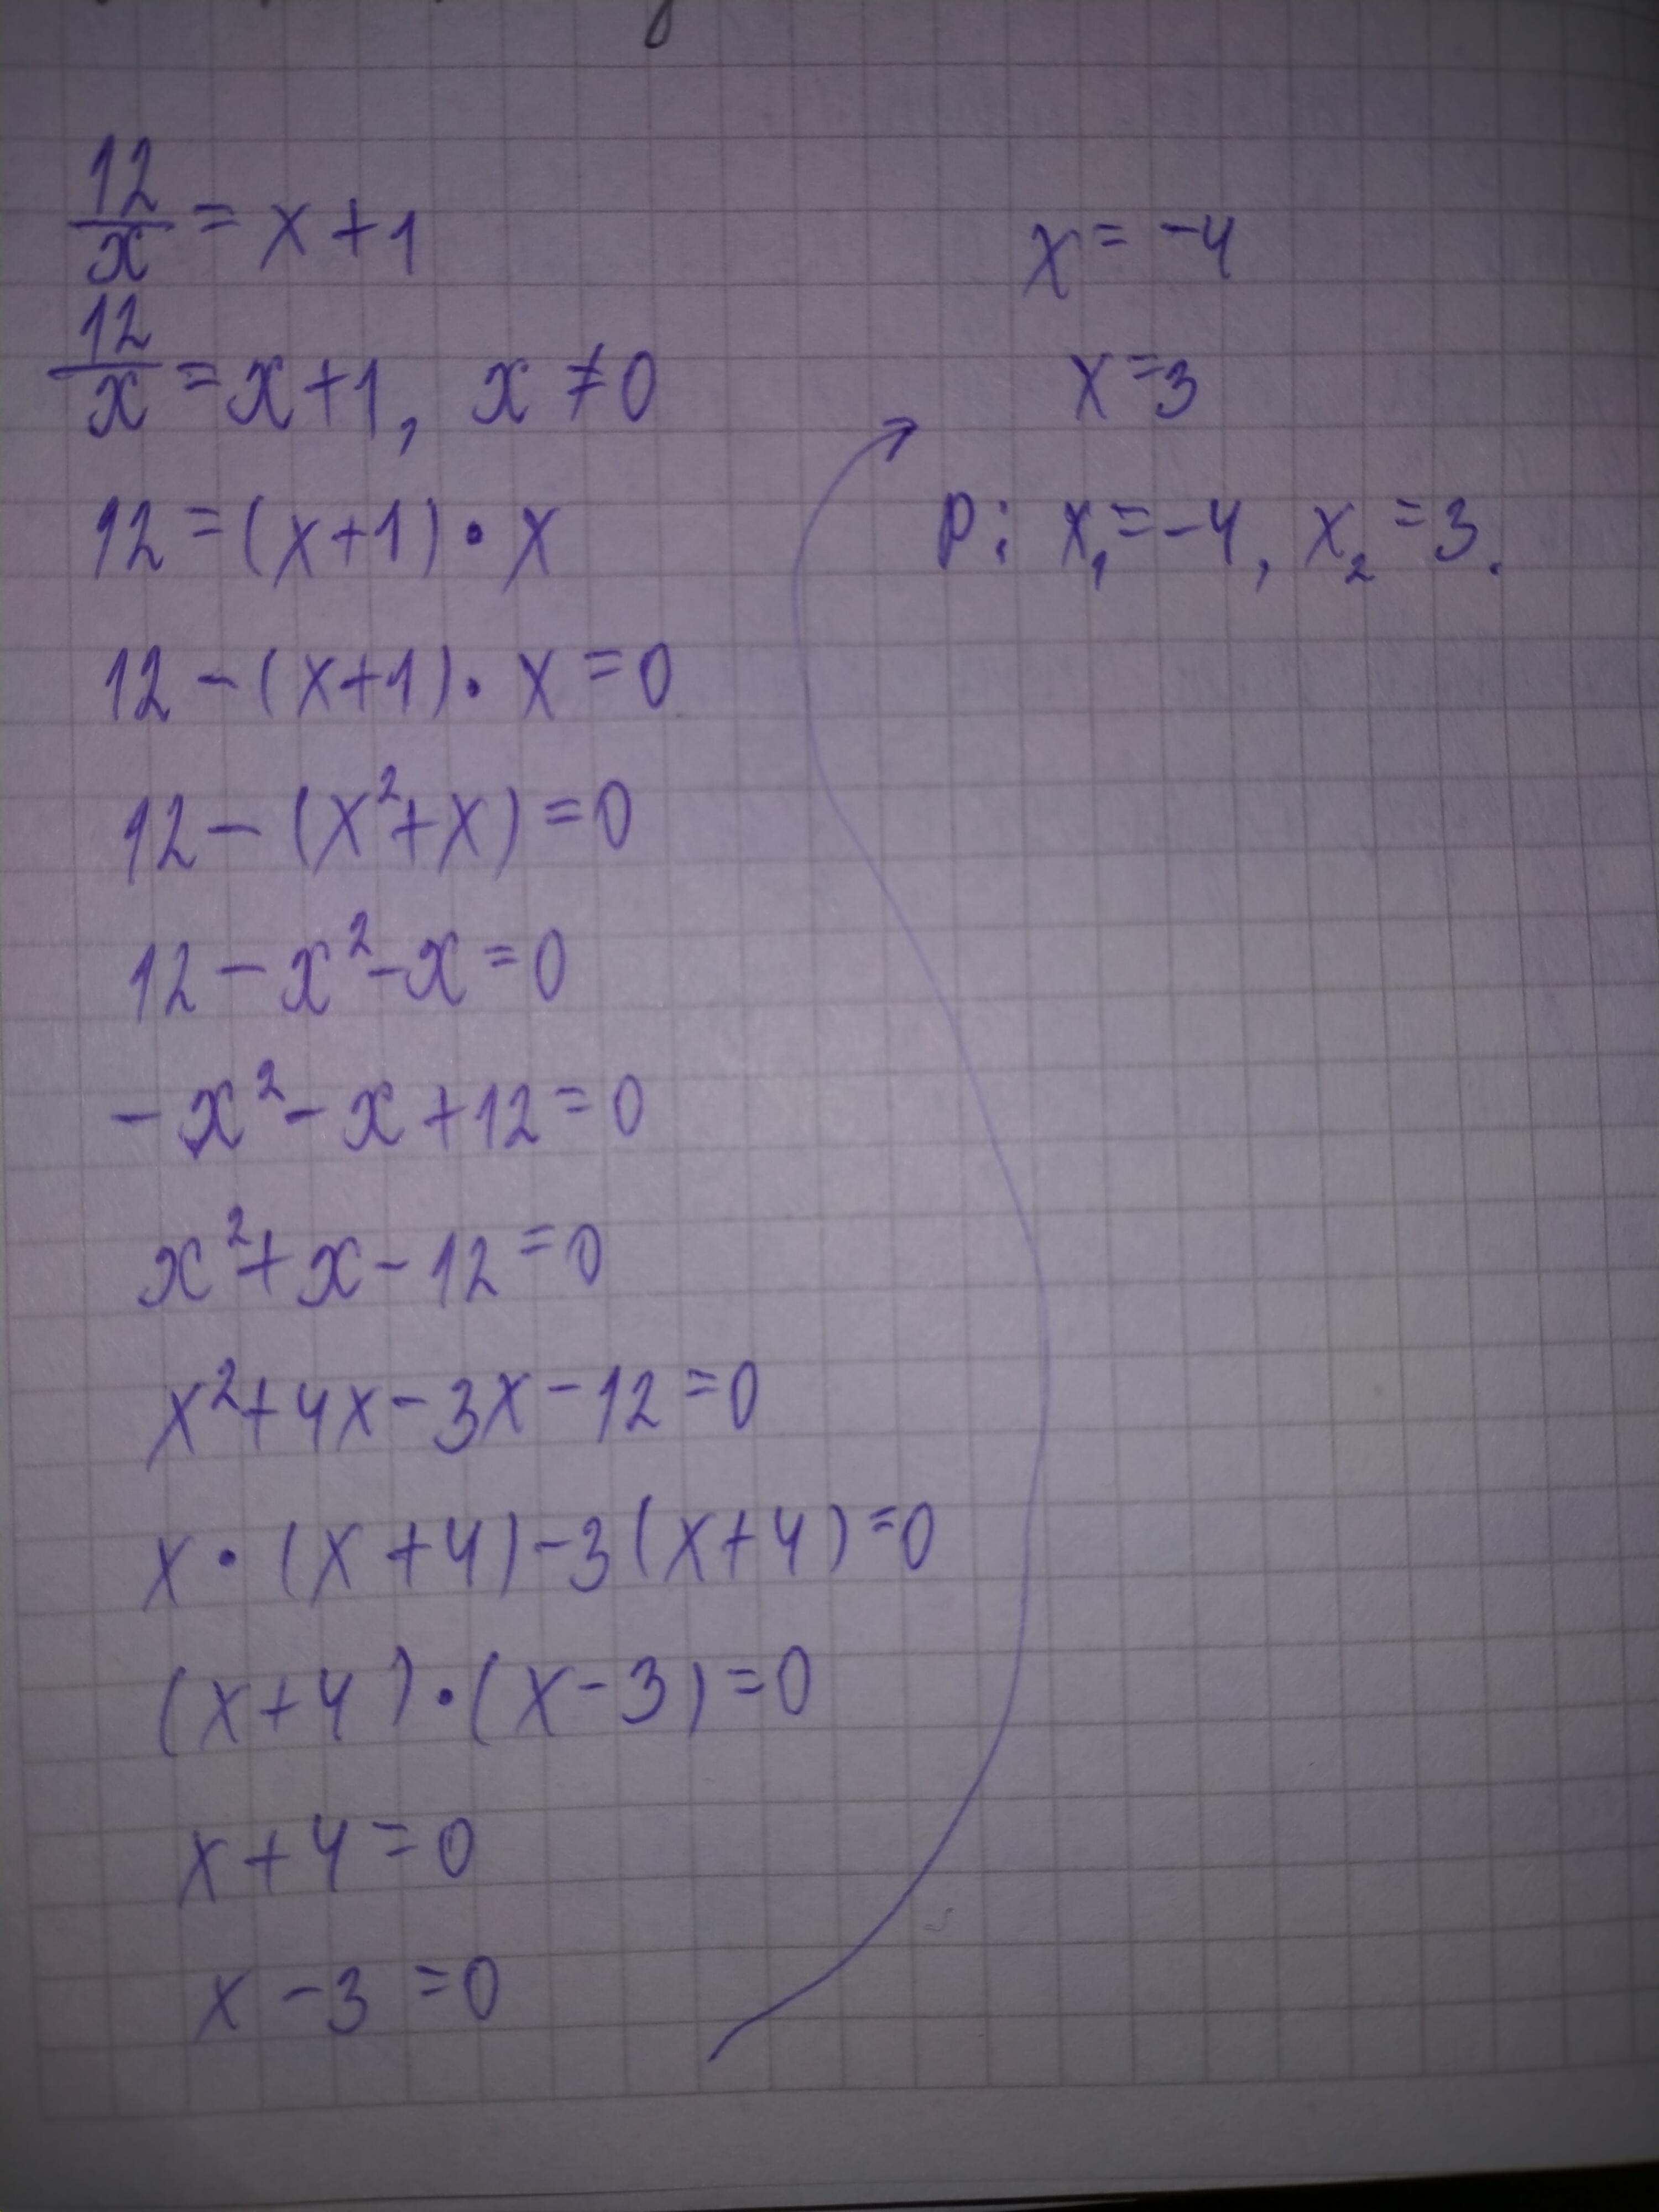 12/x = x+1
12/x = x+1, x ≠ 0
12 = (x+1) · x
12 - (x+1) · x = 0
12 - (x² + x) = 0
12 - x² - x = 0
- x² - x + 12 = 0
x² + x - 12 = 0
x² + 4x - 3x - 12 = 0
x · (x+4) - 3(x+4) = 0
(x+4) · (x-3) = 0
x+4 = 0
x - 3 = 0
x = -4
x = 3
P: x₁ = -4, x₂ = 3.